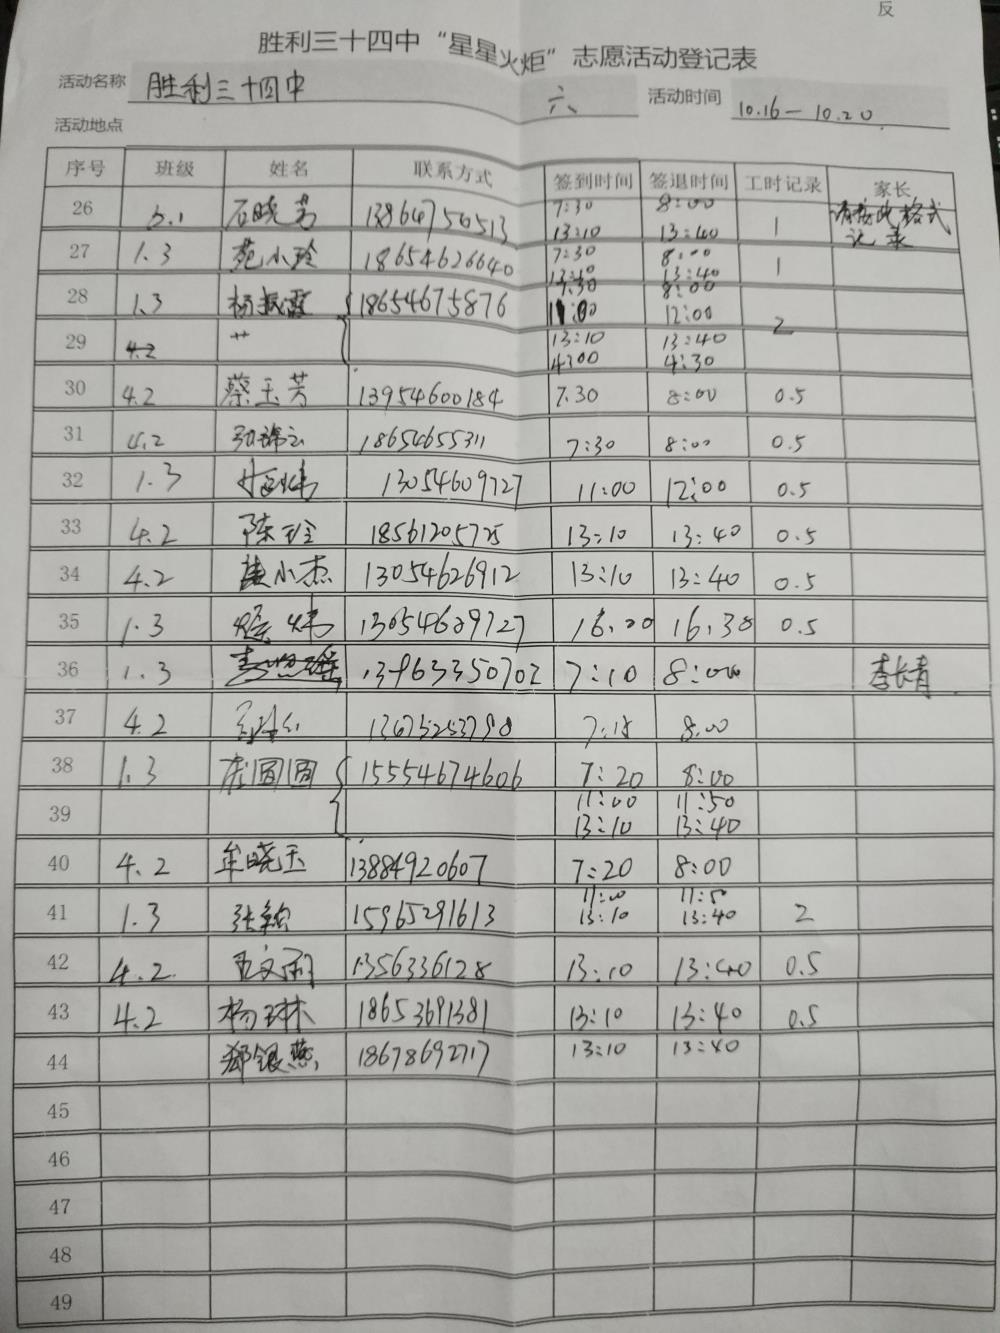 反
胜利三十四中“星星火炬”志愿活动登记表
活动名称 胜利三十四中 六 活动时间 10.16—10.20
活动地点
序号 班级 姓名 联系方式 签到时间 签退时间 工时记录 家长
26 5.1 石晓芳 13864756513 7:30 8:00 1 请按此格式
13:10 13:40 记录
27 1.3 苑小玲 18654626640 7:30 8:00 1
13:10 13:40
28 1.3 杨振霞 18654675876 7:30 8:00 2
11:00 12:00
29 4.2 13:10 13:40
4:00 4:30
30 4.2 蔡玉芳 13954600184 7.30 8:00 0.5
31 4.2 18654655311 7:30 8:00 0.5
32 1.3 13054609727 11:00 12:00 0.5
33 4.2 陈玲 18561205725 13:10 13:40 0.5
34 4.2 小杰 13054626912 13:10 13:40 0.5
35 1.3 炜 13054609727 16:00 16:30 0.5
36 1.3 13963350702 7:10 8:00 李长青
37 4.2 7:15 8:00
38 1.3 庞圆圆 15554674606 7:20 8:00
39 11:00 11:50
13:10 13:40
40 4.2 牟晓玉 13884920607 7:20 8:00
41 1.3 张 15965291613 11:00 11:50 2
13:10 13:40
42 4.2. 王文丽 1356336128 13:10 13:40 0.5
43 4.2 杨琳 18653691381 13:10 13:40 0.5
44 郑银燕 18678692717 13:10 13:40
45
46
47
48
49